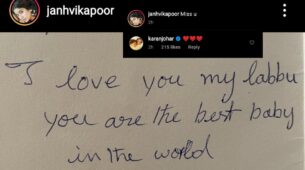 janhvikapoor
janhvikapoor Miss u
2h
karanjohar ❤️❤️❤️
2h 215 likes Reply
I love you my labbu
you are the best baby
in the world